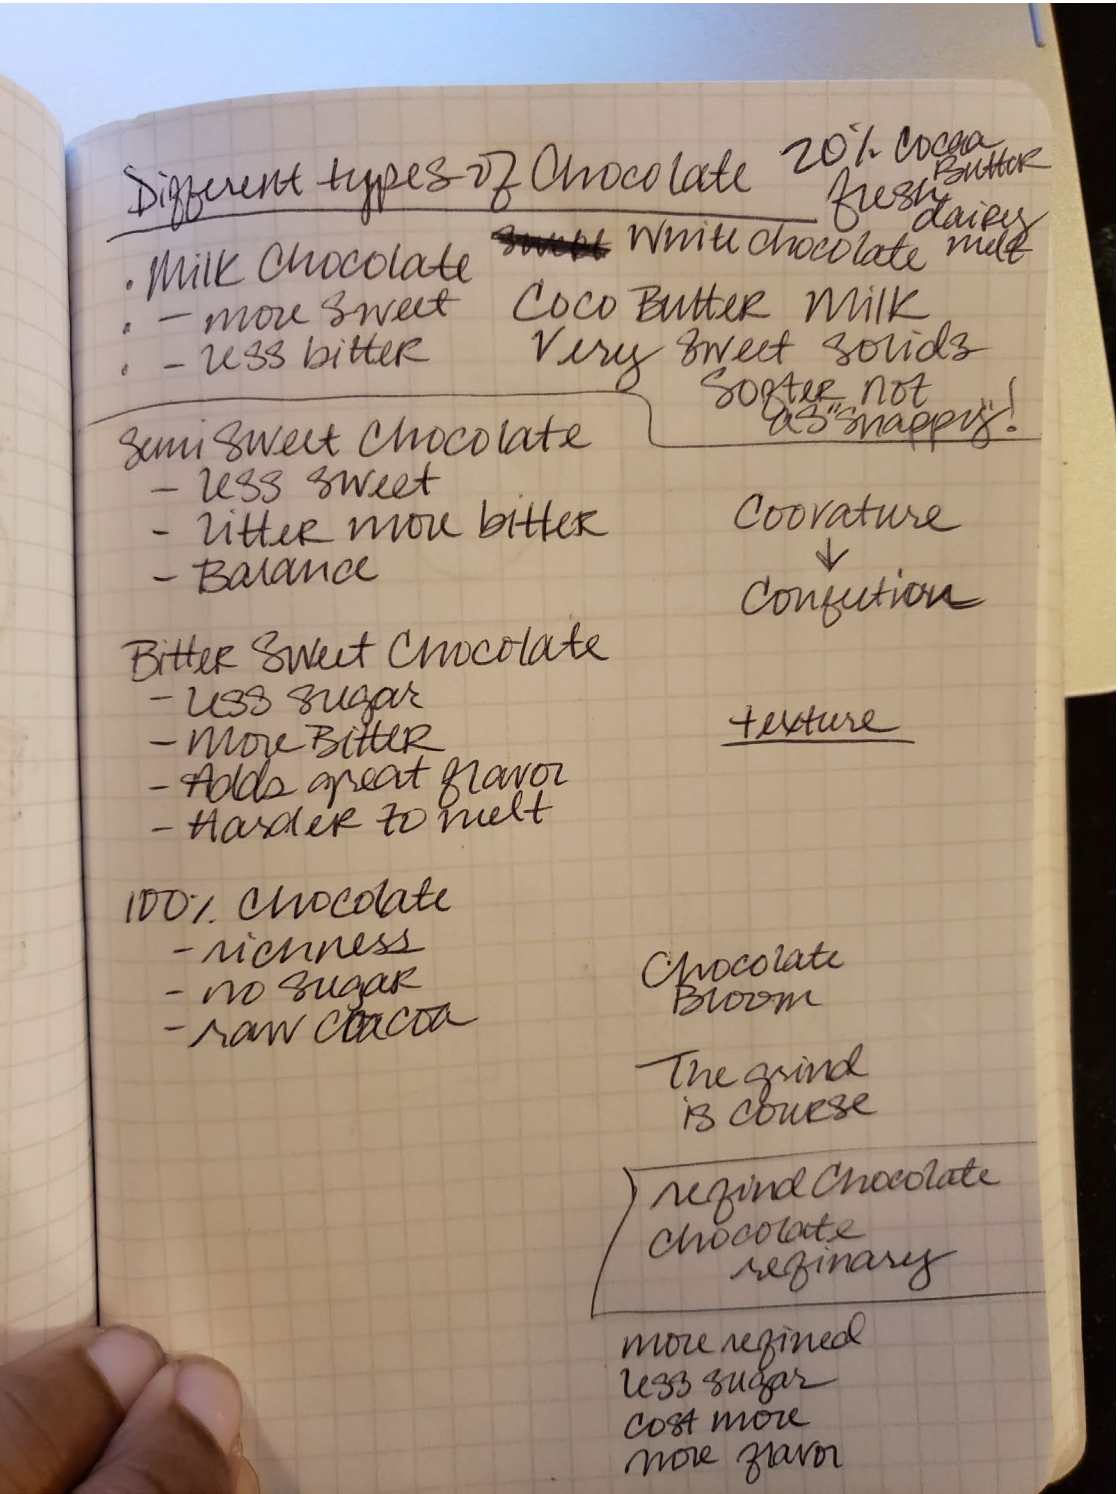 Different types of Chocolate
20% Cocoa
Butter
fresh
dairy
melt
• Milk Chocolate
• - more sweet
• - less bitter
White chocolate
Coco Butter Milk
Very sweet solids
Softer not
as "snappy"!
Semi Sweet Chocolate
- less sweet
- litter more bitter
- Balance
Coovature
↓
Confution
Bitter Sweet Chocolate
- less sugar
- more Bitter
- Adds great flavor
- Harder to melt
texture
100% Chocolate
- richness
- no sugar
- raw cacoa
Chocolate
Bloom
The grind
is course
refind Chocolate
chocolate
refinary
more refined
less sugar
cost more
more flavor